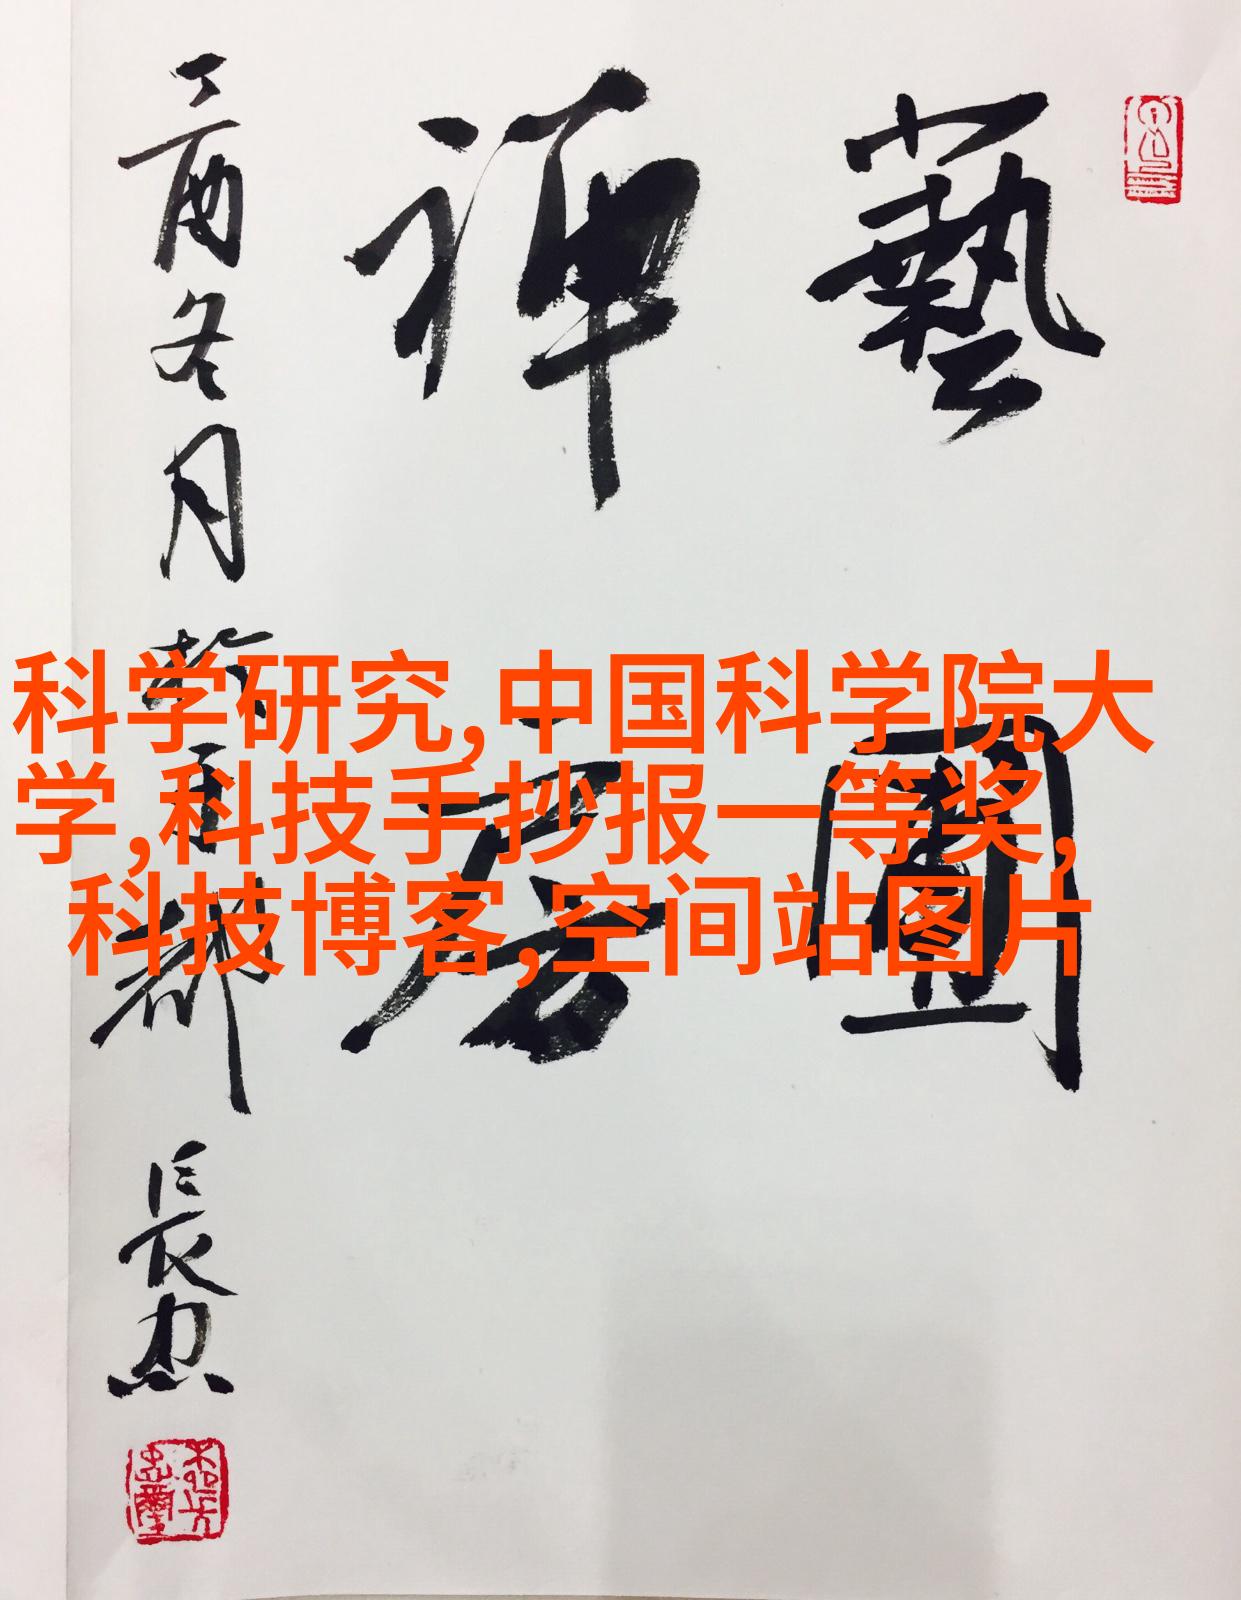 藝圃
禪房
丁酉冬月
於成都
長忠
科学研究,中国科学院大
学,科技手抄报一等奖,
科技博客,空间站图片